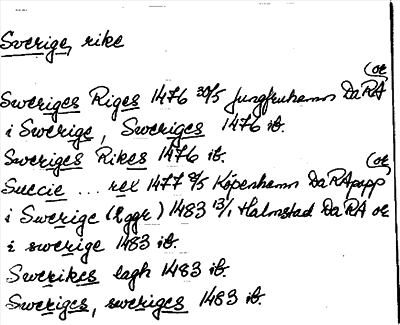 Sverige, rike
(or
Sweriges Riges 1476 30/5 Jungfruhamn DaRA
i Swerige, Sweriges 1476 ib.
Sweriges Rikes 1476 ib.
(or
Suecie ... rex 1477 8/5 Köpenhamn DaRApapp
i Swerige (Eggr) 1483 13/1 Halmstad DaRA or
i swerige 1483 ib.
Swerikes lagh 1483 ib.
Sweriges, sweriges 1483 ib.